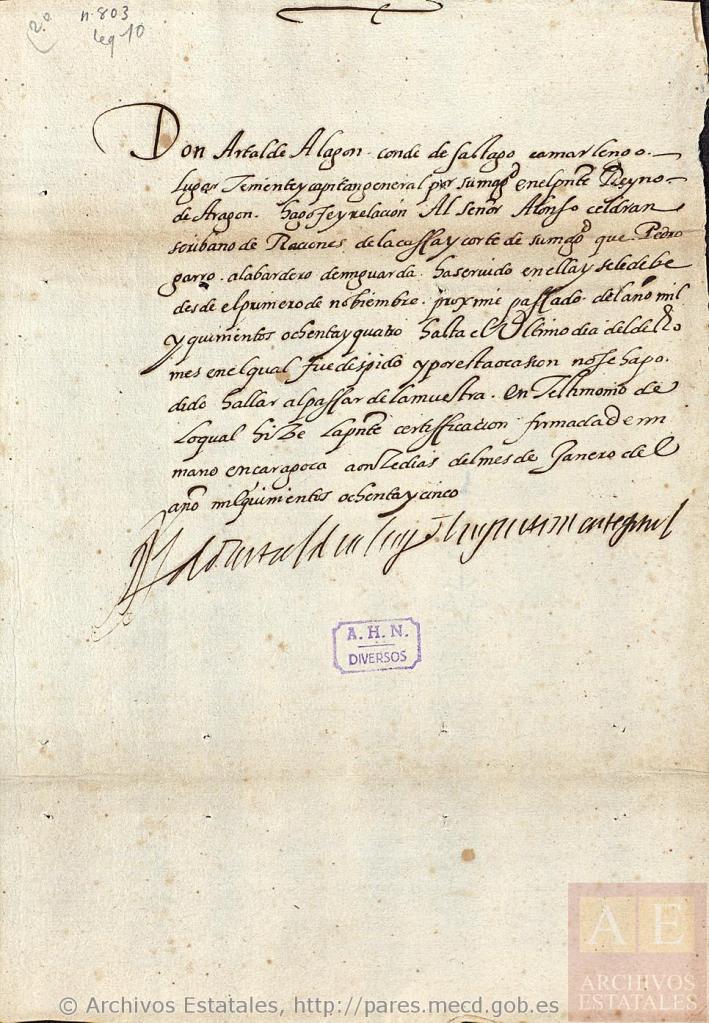 2º
n. 803
leg 10
Don Artal de Alagon conde de sastago camarlengo.
Lugar Teniente y capitan general por su magd en el pnte Reyno
de Aragon. hago fe y relacion Al señor Alonso celdran
scribano de Raciones de la cassa y corte de su magd que Pedro
garro. alabardero de mi guarda. ha seruido en ella y se le debe
desde el primero de nobiembre. proxime passado. del año mil
y quinientos ochenta y quatro hasta el Ultimo dia del dho
mes en el qual fue despido y por esta ocasion no se ha po.
dido hallar al passar de la muestra. en Testimonio de
Lo qual hize La pnte certifficacion firmada de mi
mano en caragoca a onze dias del mes de Janero del
año mil quinientos ochenta y cinco
A. H. N.
DIVERSOS
AE
ARCHIVOS
ESTATALES
© Archivos Estatales, http://pares.mecd.gob.es